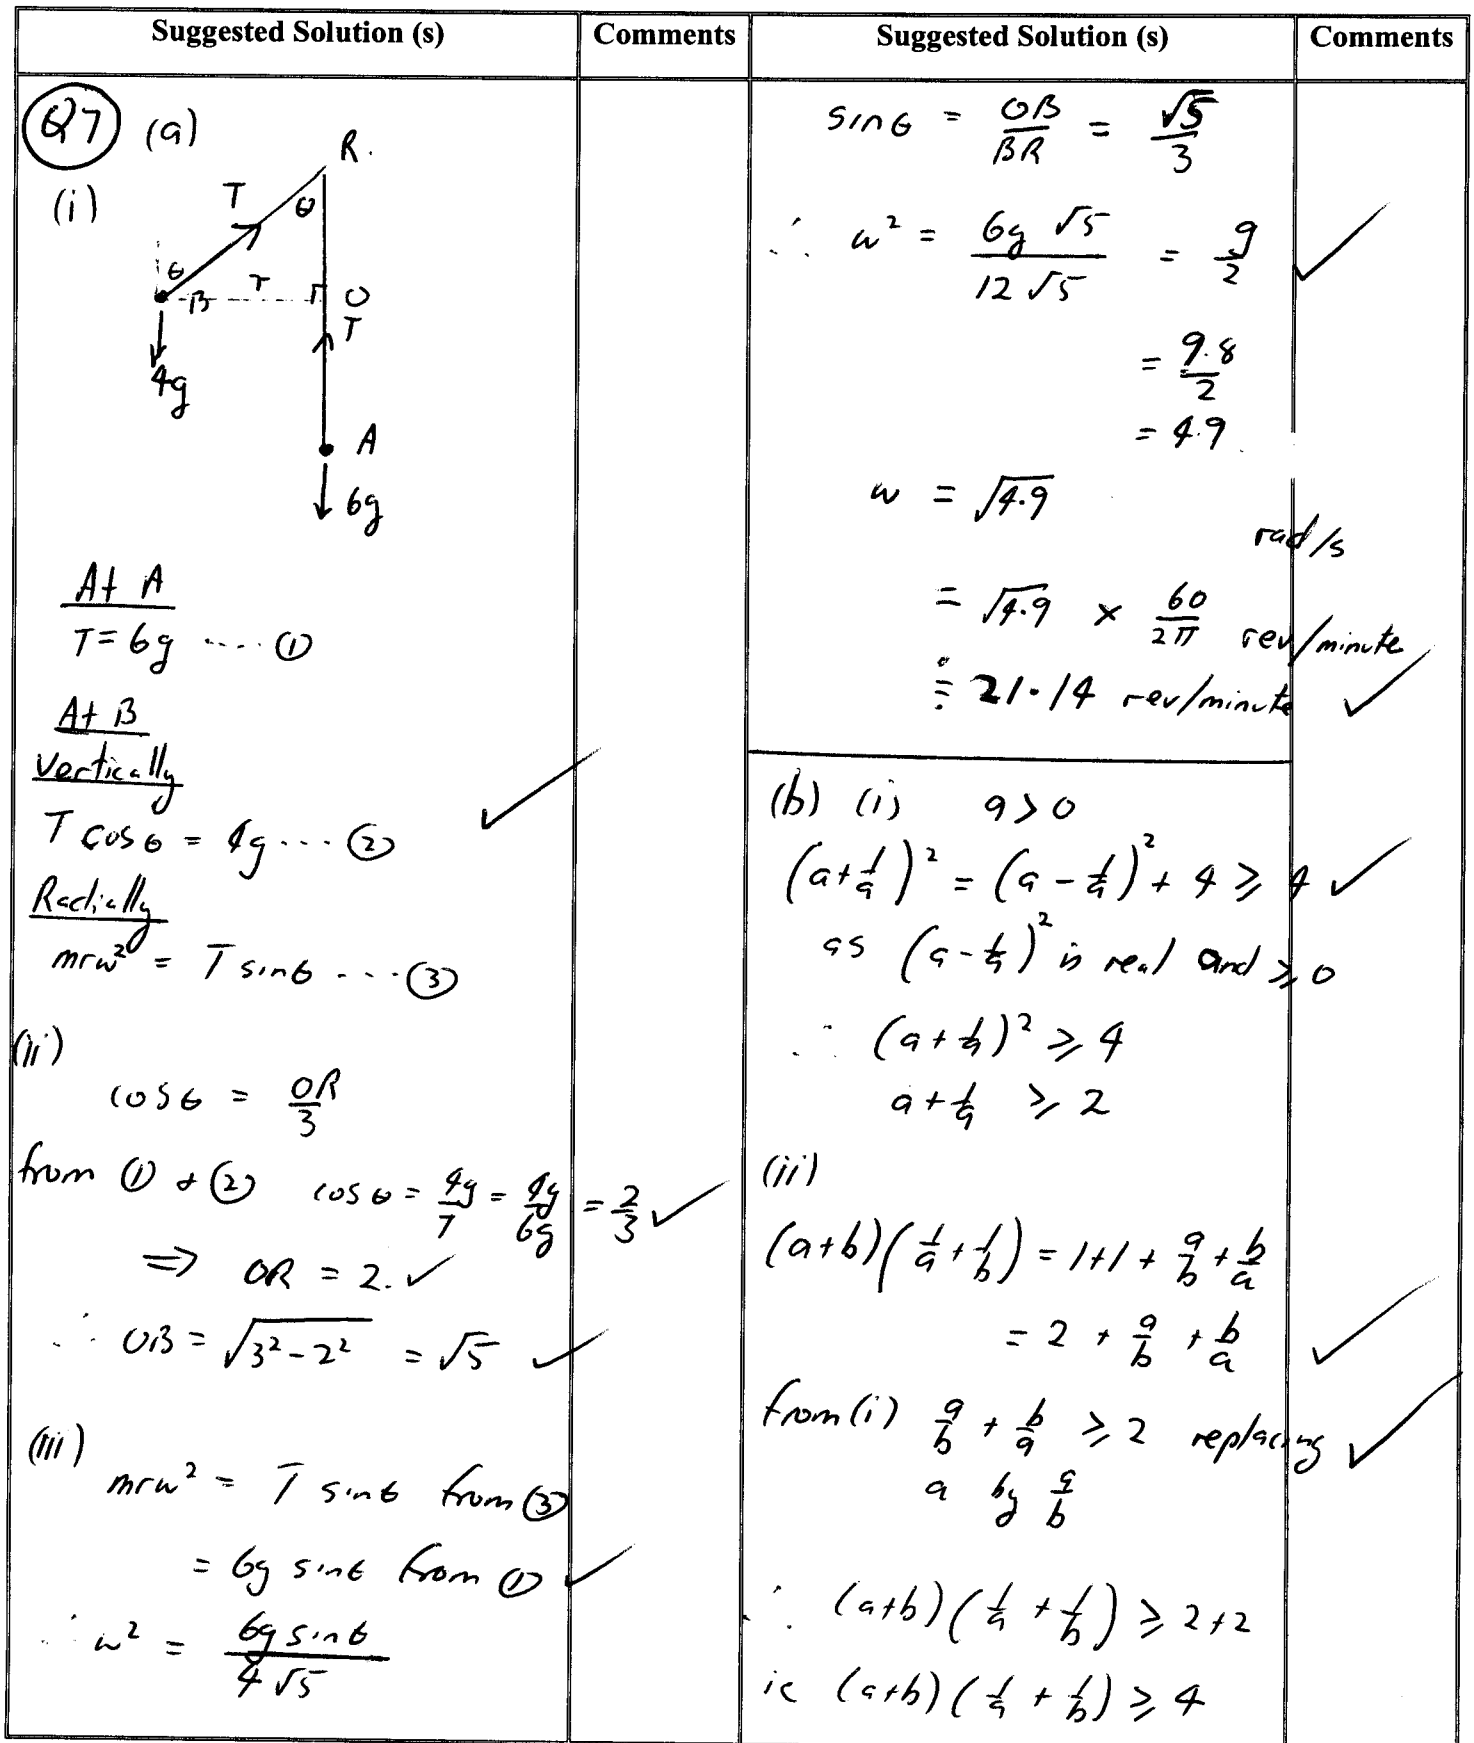 Suggested Solution (s)
Comments
Q7 (a)
(i)
R.
T
θ
θ
B
r
O
T
4g
A
6g
At A
T = 6g ···· ①
At B
Vertically
T cos θ = 4g ··· ②
Radially
mrω² = T sin θ ··· ③
(ii)
cos θ = OR/3
from ① & ② cos θ = 4g/T = 4g/6g = 2/3 ✓
⇒ OR = 2. ✓
∴ OB = √(3²-2²) = √5 ✓
(iii)
mrω² = T sin θ from ③
= 6g sin θ from ① ✓
∴ ω² = 6g sin θ / 4√5
Suggested Solution (s)
Comments
sin θ = OB/BR = √5/3
∴ ω² = 6g √5 / 12 √5 = g/2 ✓
= 9.8/2
= 4.9
ω = √4.9 rad/s
= √4.9 × 60/2π rev/minute
≑ 21.14 rev/minute ✓
(b) (i) a > 0
(a + 1/a)² = (a - 1/a)² + 4 ≥ 4 ✓
as (a - 1/a)² is real and ≥ 0
∴ (a + 1/a)² ≥ 4
a + 1/a ≥ 2
(ii)
(a+b)(1/a + 1/b) = 1+1 + a/b + b/a
= 2 + a/b + b/a ✓
from (i) a/b + b/a ≥ 2 replacing ✓
a by a/b
∴ (a+b)(1/a + 1/b) ≥ 2+2
ie (a+b)(1/a + 1/b) ≥ 4